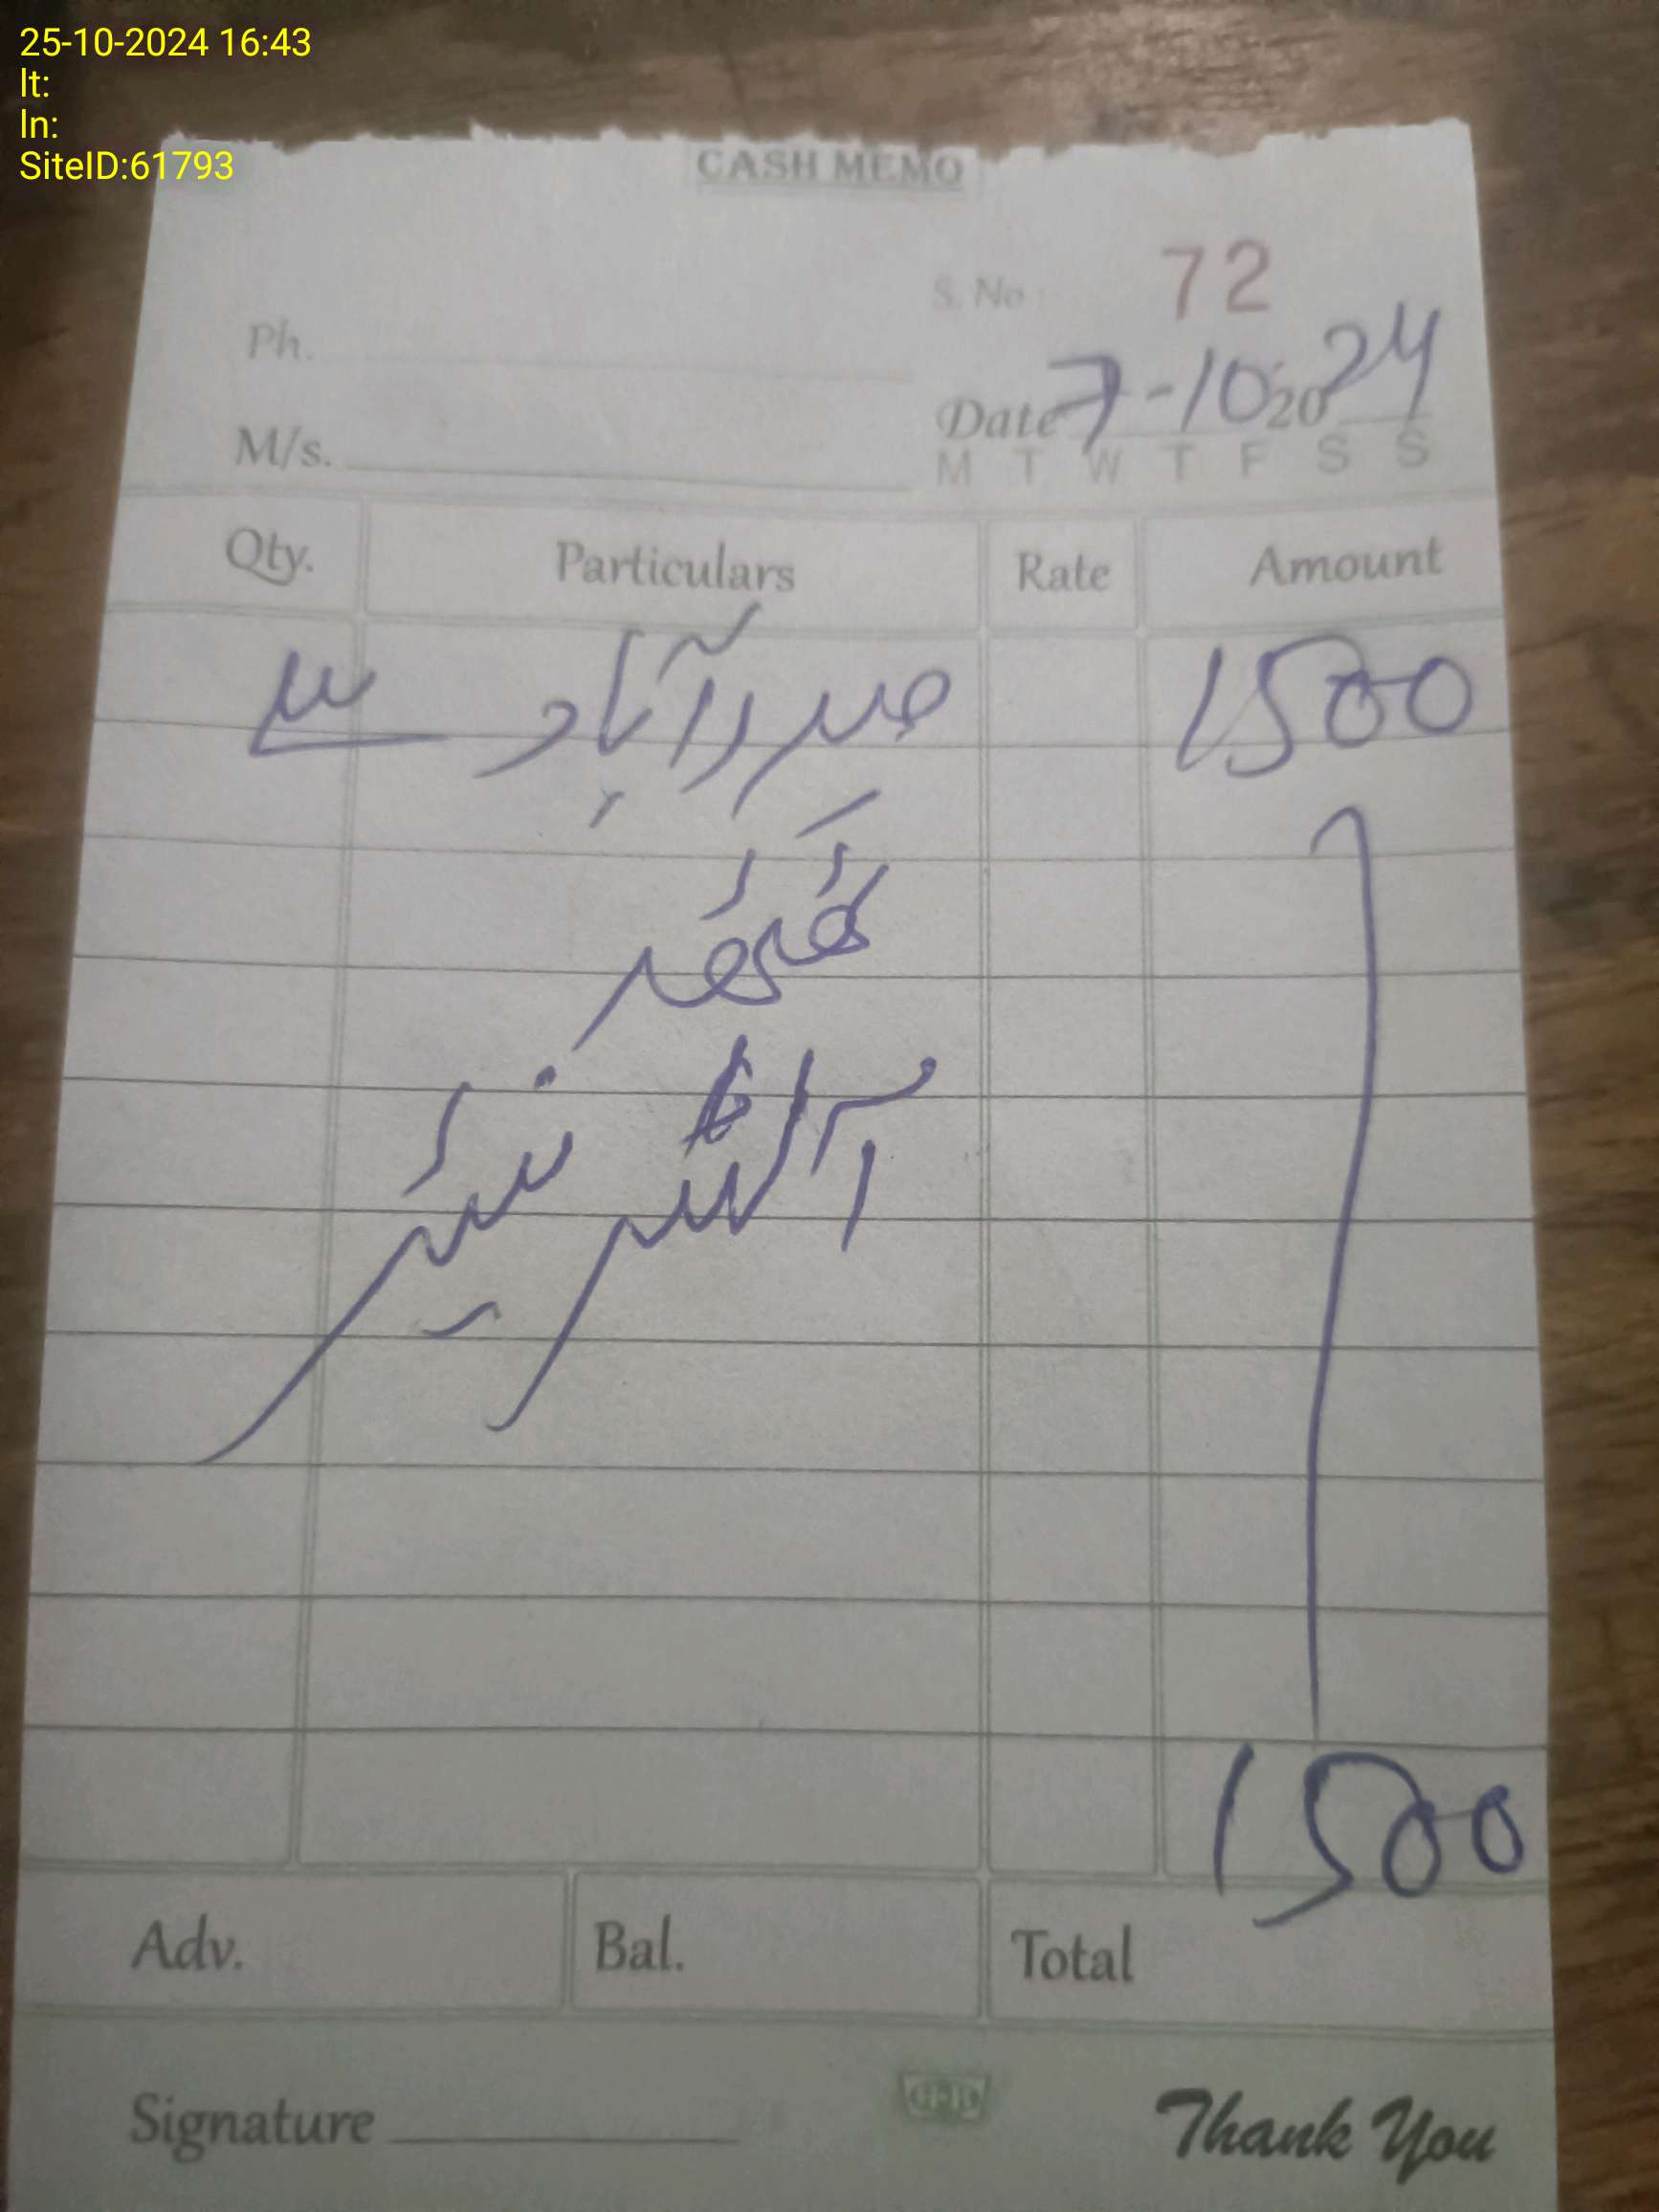 25-10-2024 16:43
lt:
ln:
SiteID:61793
CASH MEMO
S. No 72
Ph.
Date 7-10-2024
M/s.
M T W T F S S
Qty. Particulars Rate Amount
حیدرآباد سے 1500
1500
Adv. Bal. Total
Signature Thank You